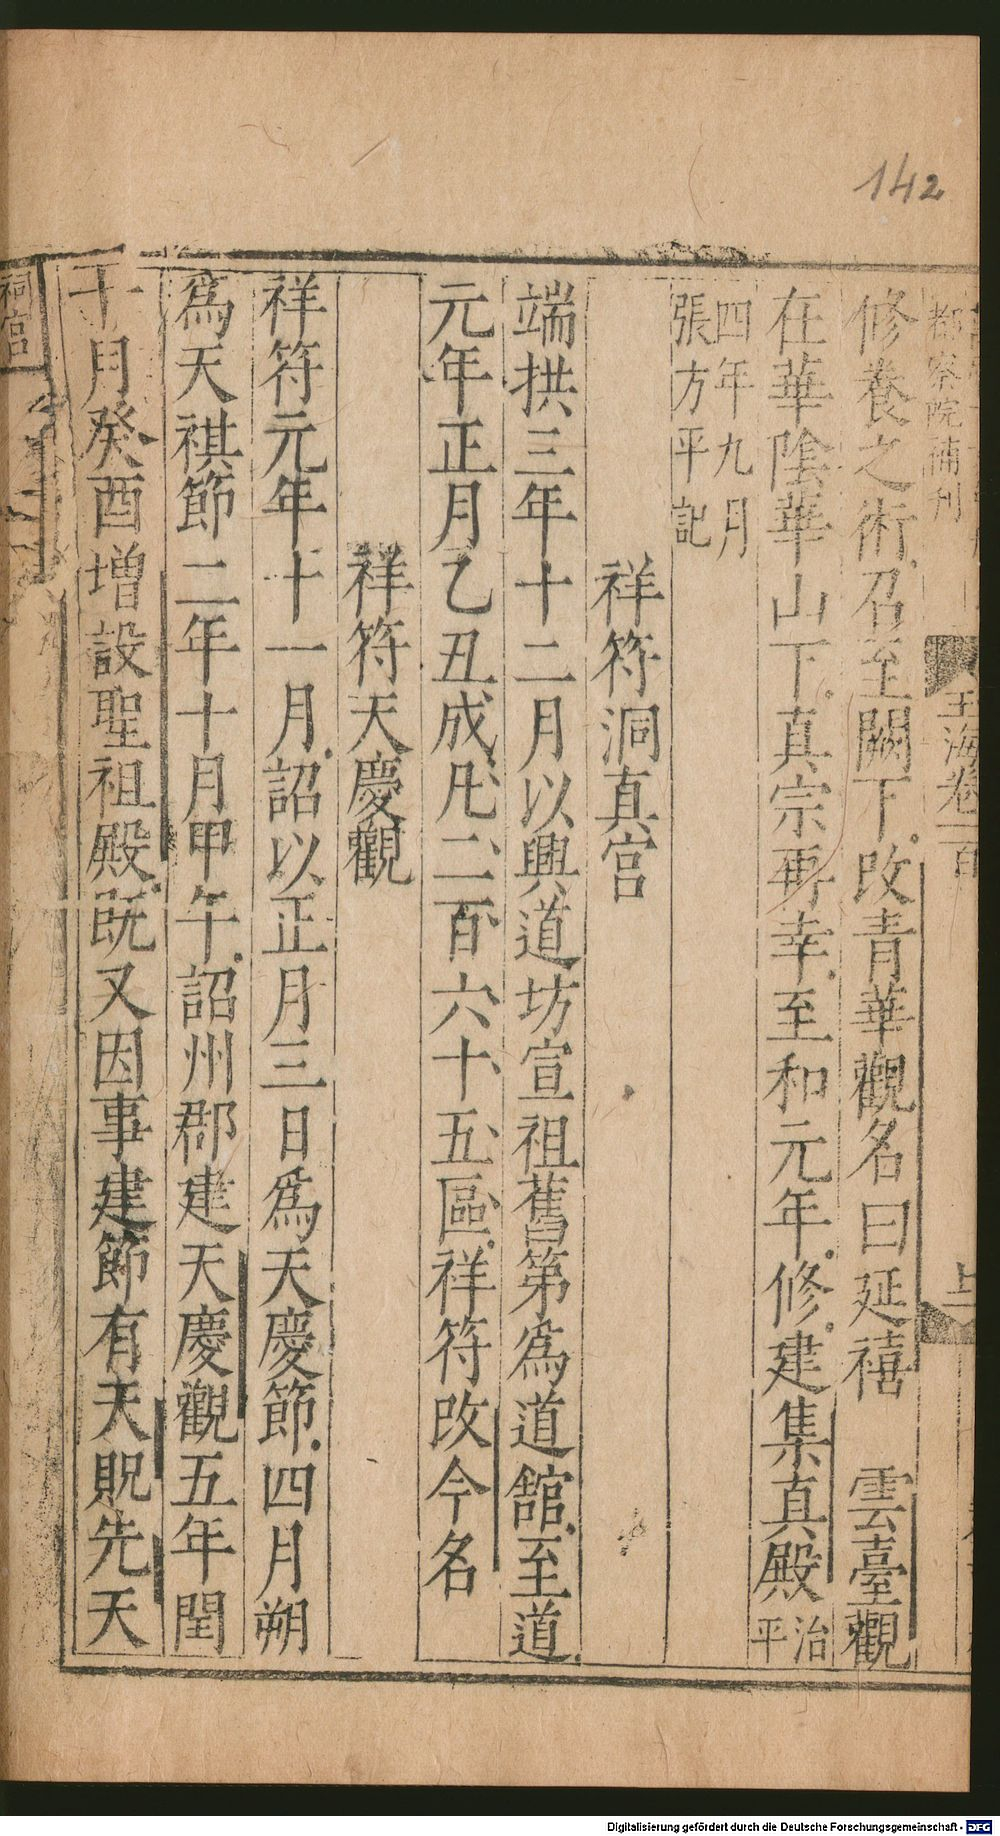 142
都察院補刊
玉海卷一百
修養之術召至闕下改青華觀名曰延禧 雲臺觀
在華陰華山下真宗再幸至和元年修建集真殿治平
四年九月
張方平記
祥符洞真宮
端拱三年十二月以興道坊宣祖舊第爲道舘至道
元年正月乙丑成凡二百六十五區祥符改今名
祥符天慶觀
祥符元年十一月詔以正月三日爲天慶節四月朔
爲天祺節二年十月甲午詔州郡建天慶觀五年閏
十月癸酉增設聖祖殿旣又因事建節有天貺先天
祠宮
Digitalisierung gefördert durch die Deutsche Forschungsgemeinschaft - DFG